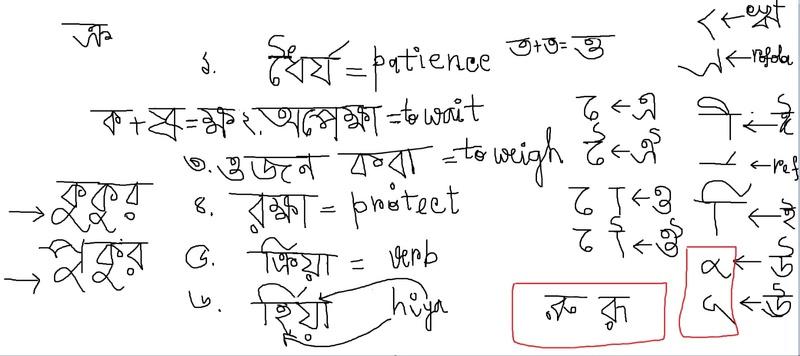 ক্র
১. ধৈর্য = patience ত+ত= ত্ত
ক + ষ = ক্ষ ২. অপেক্ষা = to wait ে ← এ ী ← ঈ
৩. ওজন করা = to weigh ৈ ← ঐ ← ref
→ কুকুর ৪. রক্ষা = protect ে া ← ও ি ← ই
→ পুকুর ৫. ক্রিয়া = verb ৌ ← ঔ ু ← উ
৬. হিয়া hiya রু রূ ূ ← ঊ